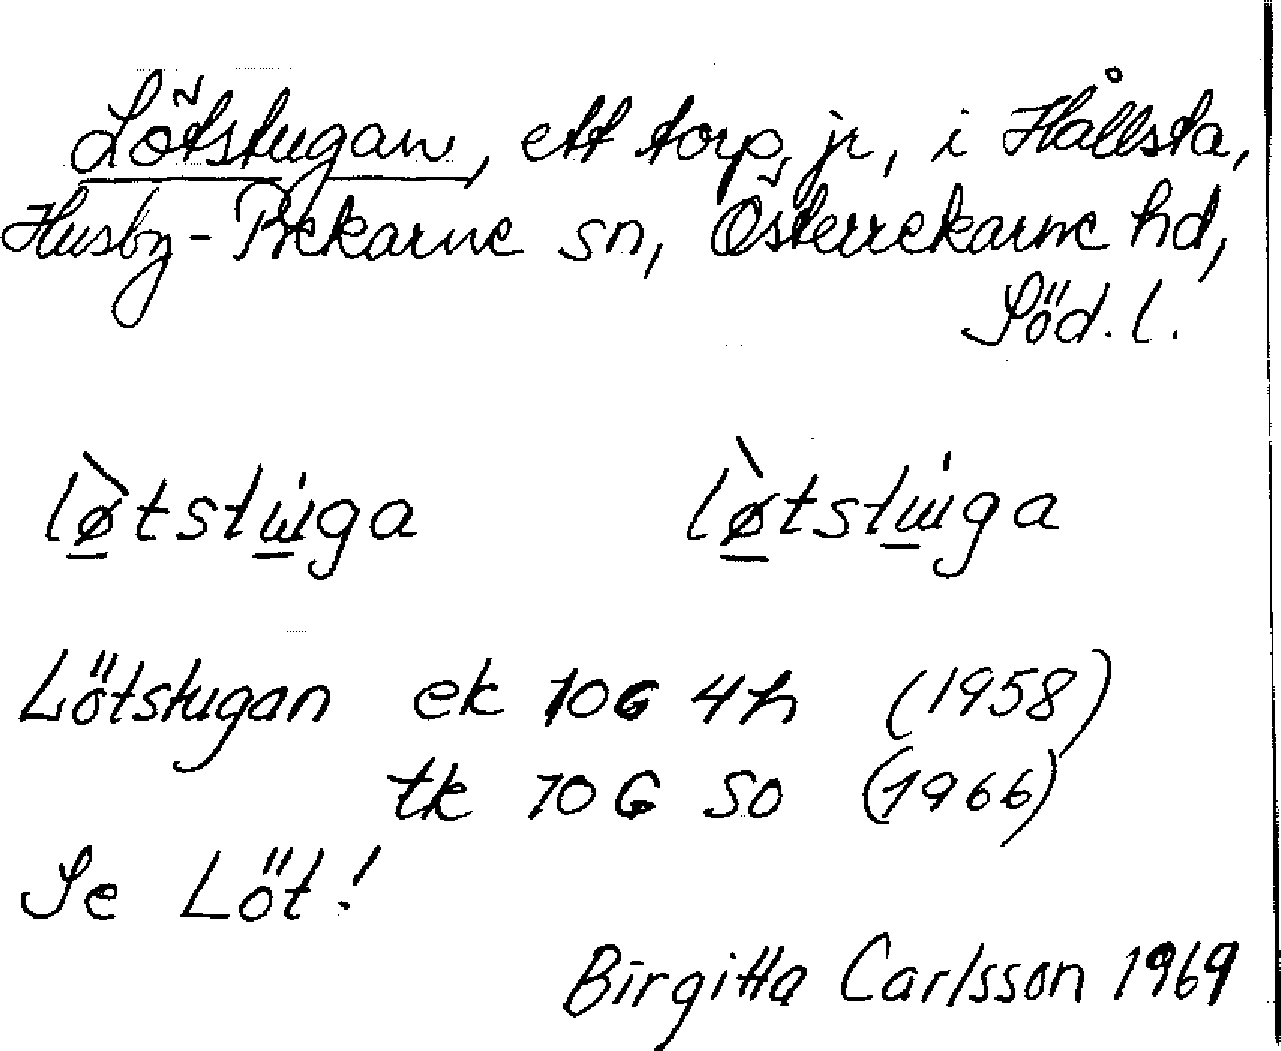 Lötstugan, ett torp, jr, i Hållsta,
Husby-Rekarne sn, Österrekarne hd,
Söd. l.
Lötstugan ek 10G 4h (1958)
tk 10G SO (1966)
Se Löt!
Birgitta Carlsson 1969